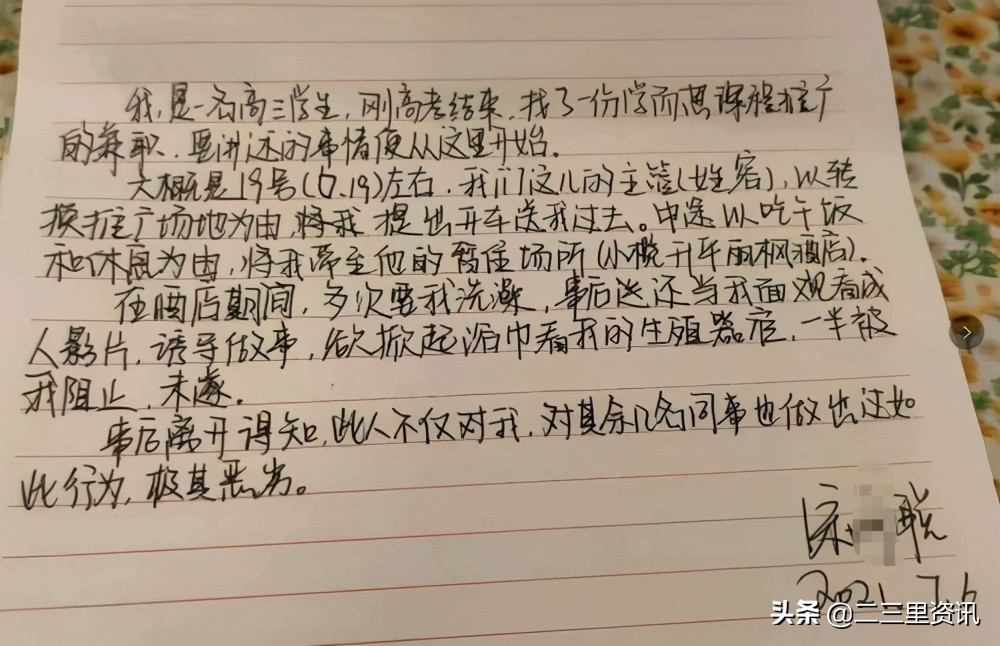 我是一名高三学生，刚高考结束，找了一份学而思课程推广
的兼职，要讲述的事情便从这里开始。
大概是19号(6.19)左右，我们这儿的主管(姓客)，以转
换推广场地为由，将我提出开车送我过去。中途以吃午饭
和休息为由，将我带至他的暂住场所(小榄升平丽枫酒店)。
在酒店期间，多次要我洗澡，事后还当我面观看成
人影片，诱导做事，欲掀起浴巾看我的生殖器官，一半被
我阻止，未遂。
事后离开得知，此人不仅对我，对其余几名同事也做出过如
此行为，极其恶劣。
聪
2021.7.6
头条 @二三里资讯